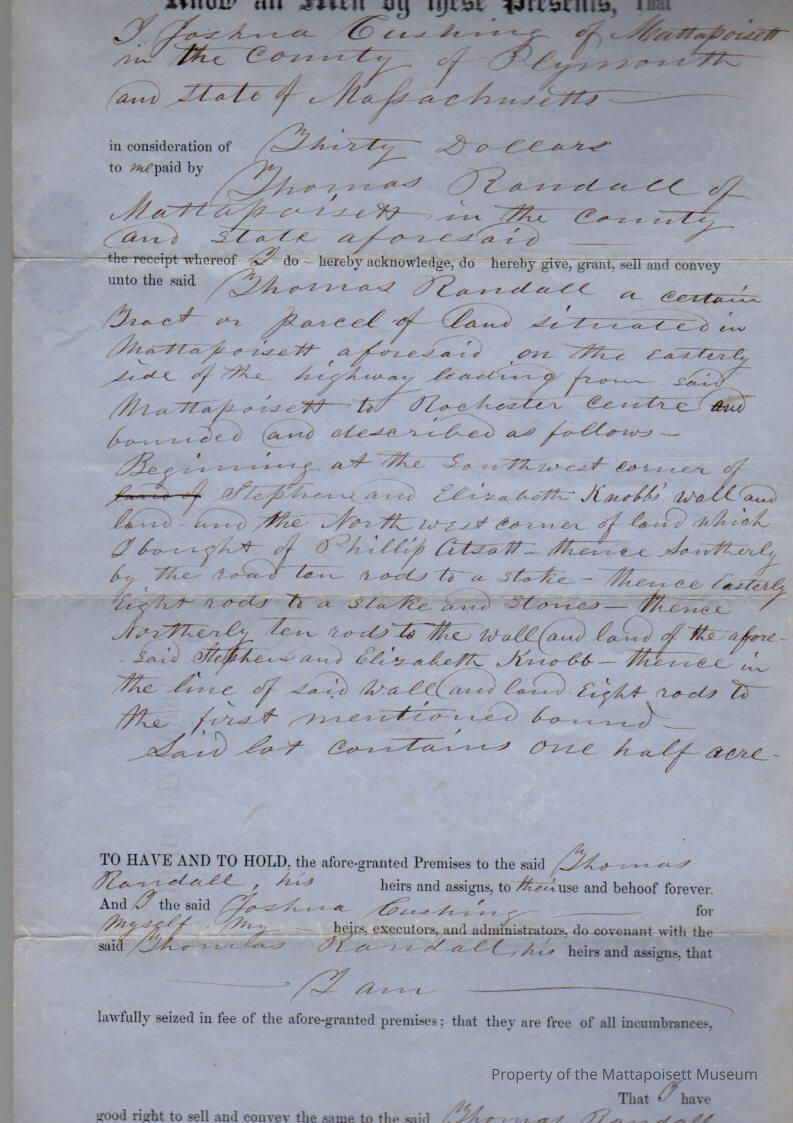 Know all Men by these Presents, That
I Joshua Cushing of Mattapoisett
in the County of Plymouth
and State of Massachusetts
in consideration of Thirty Dollars
to me paid by
Thomas Randall of
Mattapoisett in the County
and State aforesaid
the receipt whereof I do hereby acknowledge, do hereby give, grant, sell and convey
unto the said Thomas Randall a certain
Tract or parcel of land situated in
Mattapoisett aforesaid on the Easterly
side of the highway leading from said
Mattapoisett to Rochester Centre and
bounded and described as follows-
Beginning at the Southwest corner of
land of Stephen and Elizabeth Knobb's wall and
land - and the North west corner of land which
I bought of Phillip Atsatt - thence Southerly
by the road ten rods to a stake - thence Easterly
Eight rods to a stake and stones - thence
Northerly ten rods to the wall and land of the afore-
-said Stephen and Elizabeth Knobb - thence in
the line of said wall and land Eight rods to
the first mentioned bound-
Said lot contains one half acre-
TO HAVE AND TO HOLD, the afore-granted Premises to the said Thomas
Randall, his heirs and assigns, to their use and behoof forever.
And I the said Joshua Cushing for
myself my heirs, executors, and administrators, do covenant with the
said Thomas Randall, his heirs and assigns, that
I am
lawfully seized in fee of the afore-granted premises; that they are free of all incumbrances,
Property of the Mattapoisett Museum
That I have
good right to sell and convey the same to the said Thomas Randall